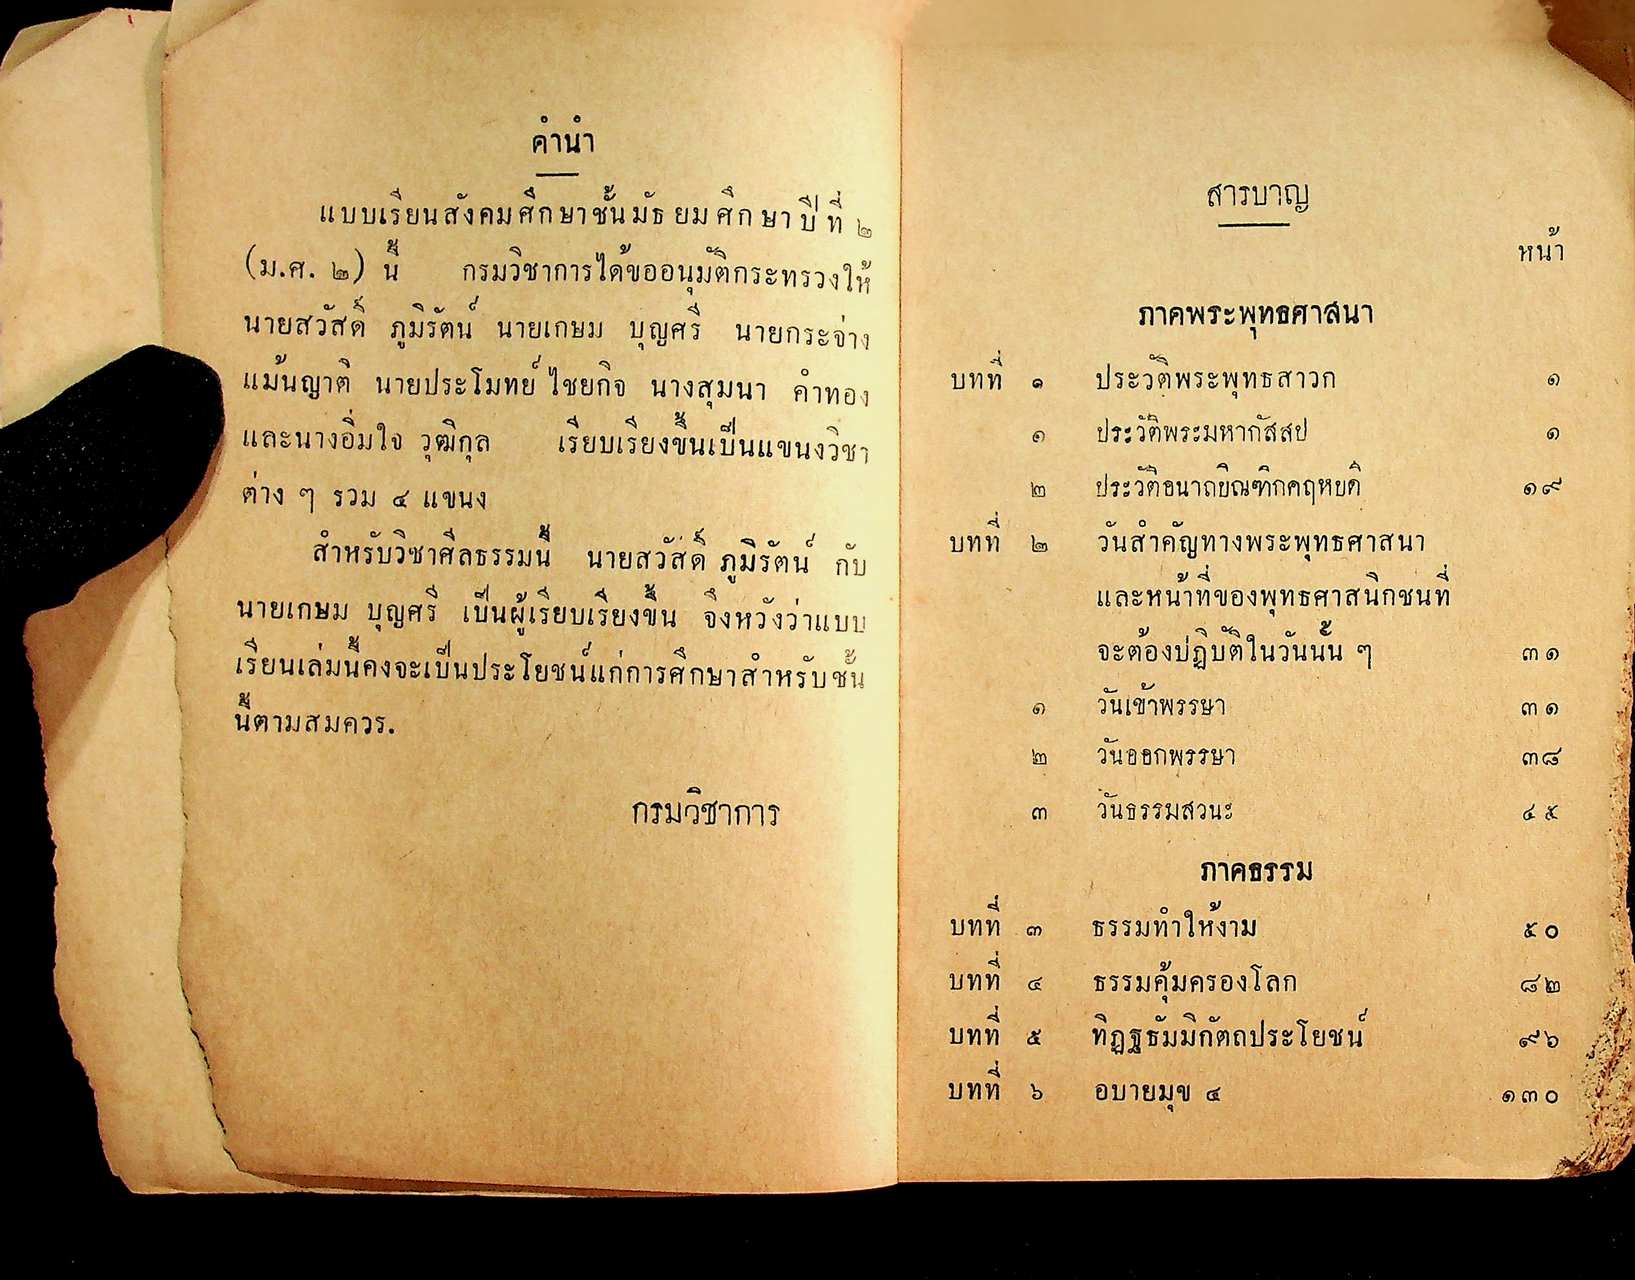 คำนำ
แบบเรียนสังคมศึกษาชั้นมัธยมศึกษาปีที่ ๒
(ม.ศ. ๒) นี้ กรมวิชาการได้ขออนุมัติกระทรวงให้
นายสวัสดิ์ ภูมิรัตน์ นายเกษม บุญศรี นายกระจ่าง
แม้นญาติ นายประโมทย์ ไชยกิจ นางสุมนา คำทอง
และนางอิ่มใจ วุฒิกุล เรียบเรียงขึ้นเป็นแขนงวิชา
ต่าง ๆ รวม ๔ แขนง
สำหรับวิชาศีลธรรมนี้ นายสวัสดิ์ ภูมิรัตน์ กับ
นายเกษม บุญศรี เป็นผู้เรียบเรียงขึ้น จึงหวังว่าแบบ
เรียนเล่มนี้คงจะเป็นประโยชน์แก่การศึกษาสำหรับชั้น
นี้ตามสมควร.
กรมวิชาการ
สารบาญ
หน้า
ภาคพระพุทธศาสนา
บทที่ ๑ ประวัติพระพุทธสาวก ๑
๑ ประวัติพระมหากัสสป ๑
๒ ประวัติอนาถบิณฑิกคฤหบดี ๑๙
บทที่ ๒ วันสำคัญทางพระพุทธศาสนา
และหน้าที่ของพุทธศาสนิกชนที่
จะต้องปฏิบัติในวันนั้น ๆ ๓๑
๑ วันเข้าพรรษา ๓๑
๒ วันออกพรรษา ๓๘
๓ วันธรรมสวนะ ๔๕
ภาคธรรม
บทที่ ๓ ธรรมทำให้งาม ๕๐
บทที่ ๔ ธรรมคุ้มครองโลก ๘๒
บทที่ ๕ ทิฏฐธัมมิกัตถประโยชน์ ๙๖
บทที่ ๖ อบายมุข ๔ ๑๓๐